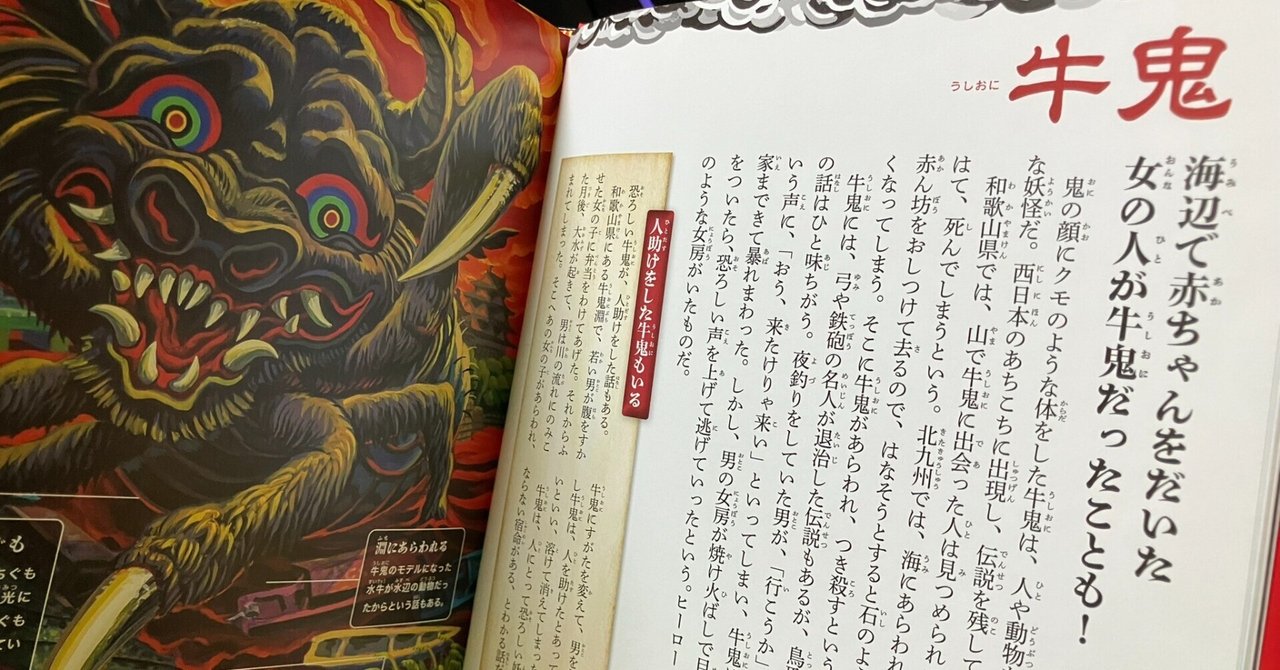 牛鬼
うしおに
海辺で赤ちゃんをだいた
女の人が牛鬼だったことも！
鬼の顔にクモのような体をした牛鬼は、人や動物
な妖怪だ。西日本のあちこちに出現し、伝説を残して
和歌山県では、山で牛鬼に出会った人は見つめられ
はて、死んでしまうという。北九州では、海にあらわれ
赤ん坊をおしつけて去るので、はなそうとすると石のよ
くなってしまう。そこに牛鬼があらわれ、つき殺すという
牛鬼には、弓や鉄砲の名人が退治した伝説もあるが、鳥
の話はひと味ちがう。夜釣りをしていた男が、「行こうか」
いう声に、「おう、来たけりゃ来い」といってしまい、牛鬼
家まできて暴れまわった。しかし、男の女房が焼け火ばしで目
をついたら、恐ろしい声を上げて逃げていったという。ヒーロー
のような女房がいたものだ。
人助けをした牛鬼もいる
恐ろしい牛鬼が、人助けをした話もある。
和歌山県にある牛鬼淵で、若い男が腹をすか
せた女の子に弁当をわけてあげた。それからふ
た月後、大水が起きて、男は川の流れにのみこ
まれてしまった。そこへあの女の子があらわれ、
牛鬼にすがたを変えて、男を
し牛鬼は、人を助けたとあって
いといい、溶けて消えてしまっ
牛鬼は、人にとって恐ろしい妖
ならない宿命がある、とわかる話
淵にあらわれる
牛鬼のモデルになった
水牛が水辺の動物だっ
たからという話もある。
ぐも
ちぐも
光に
ぐも
てい